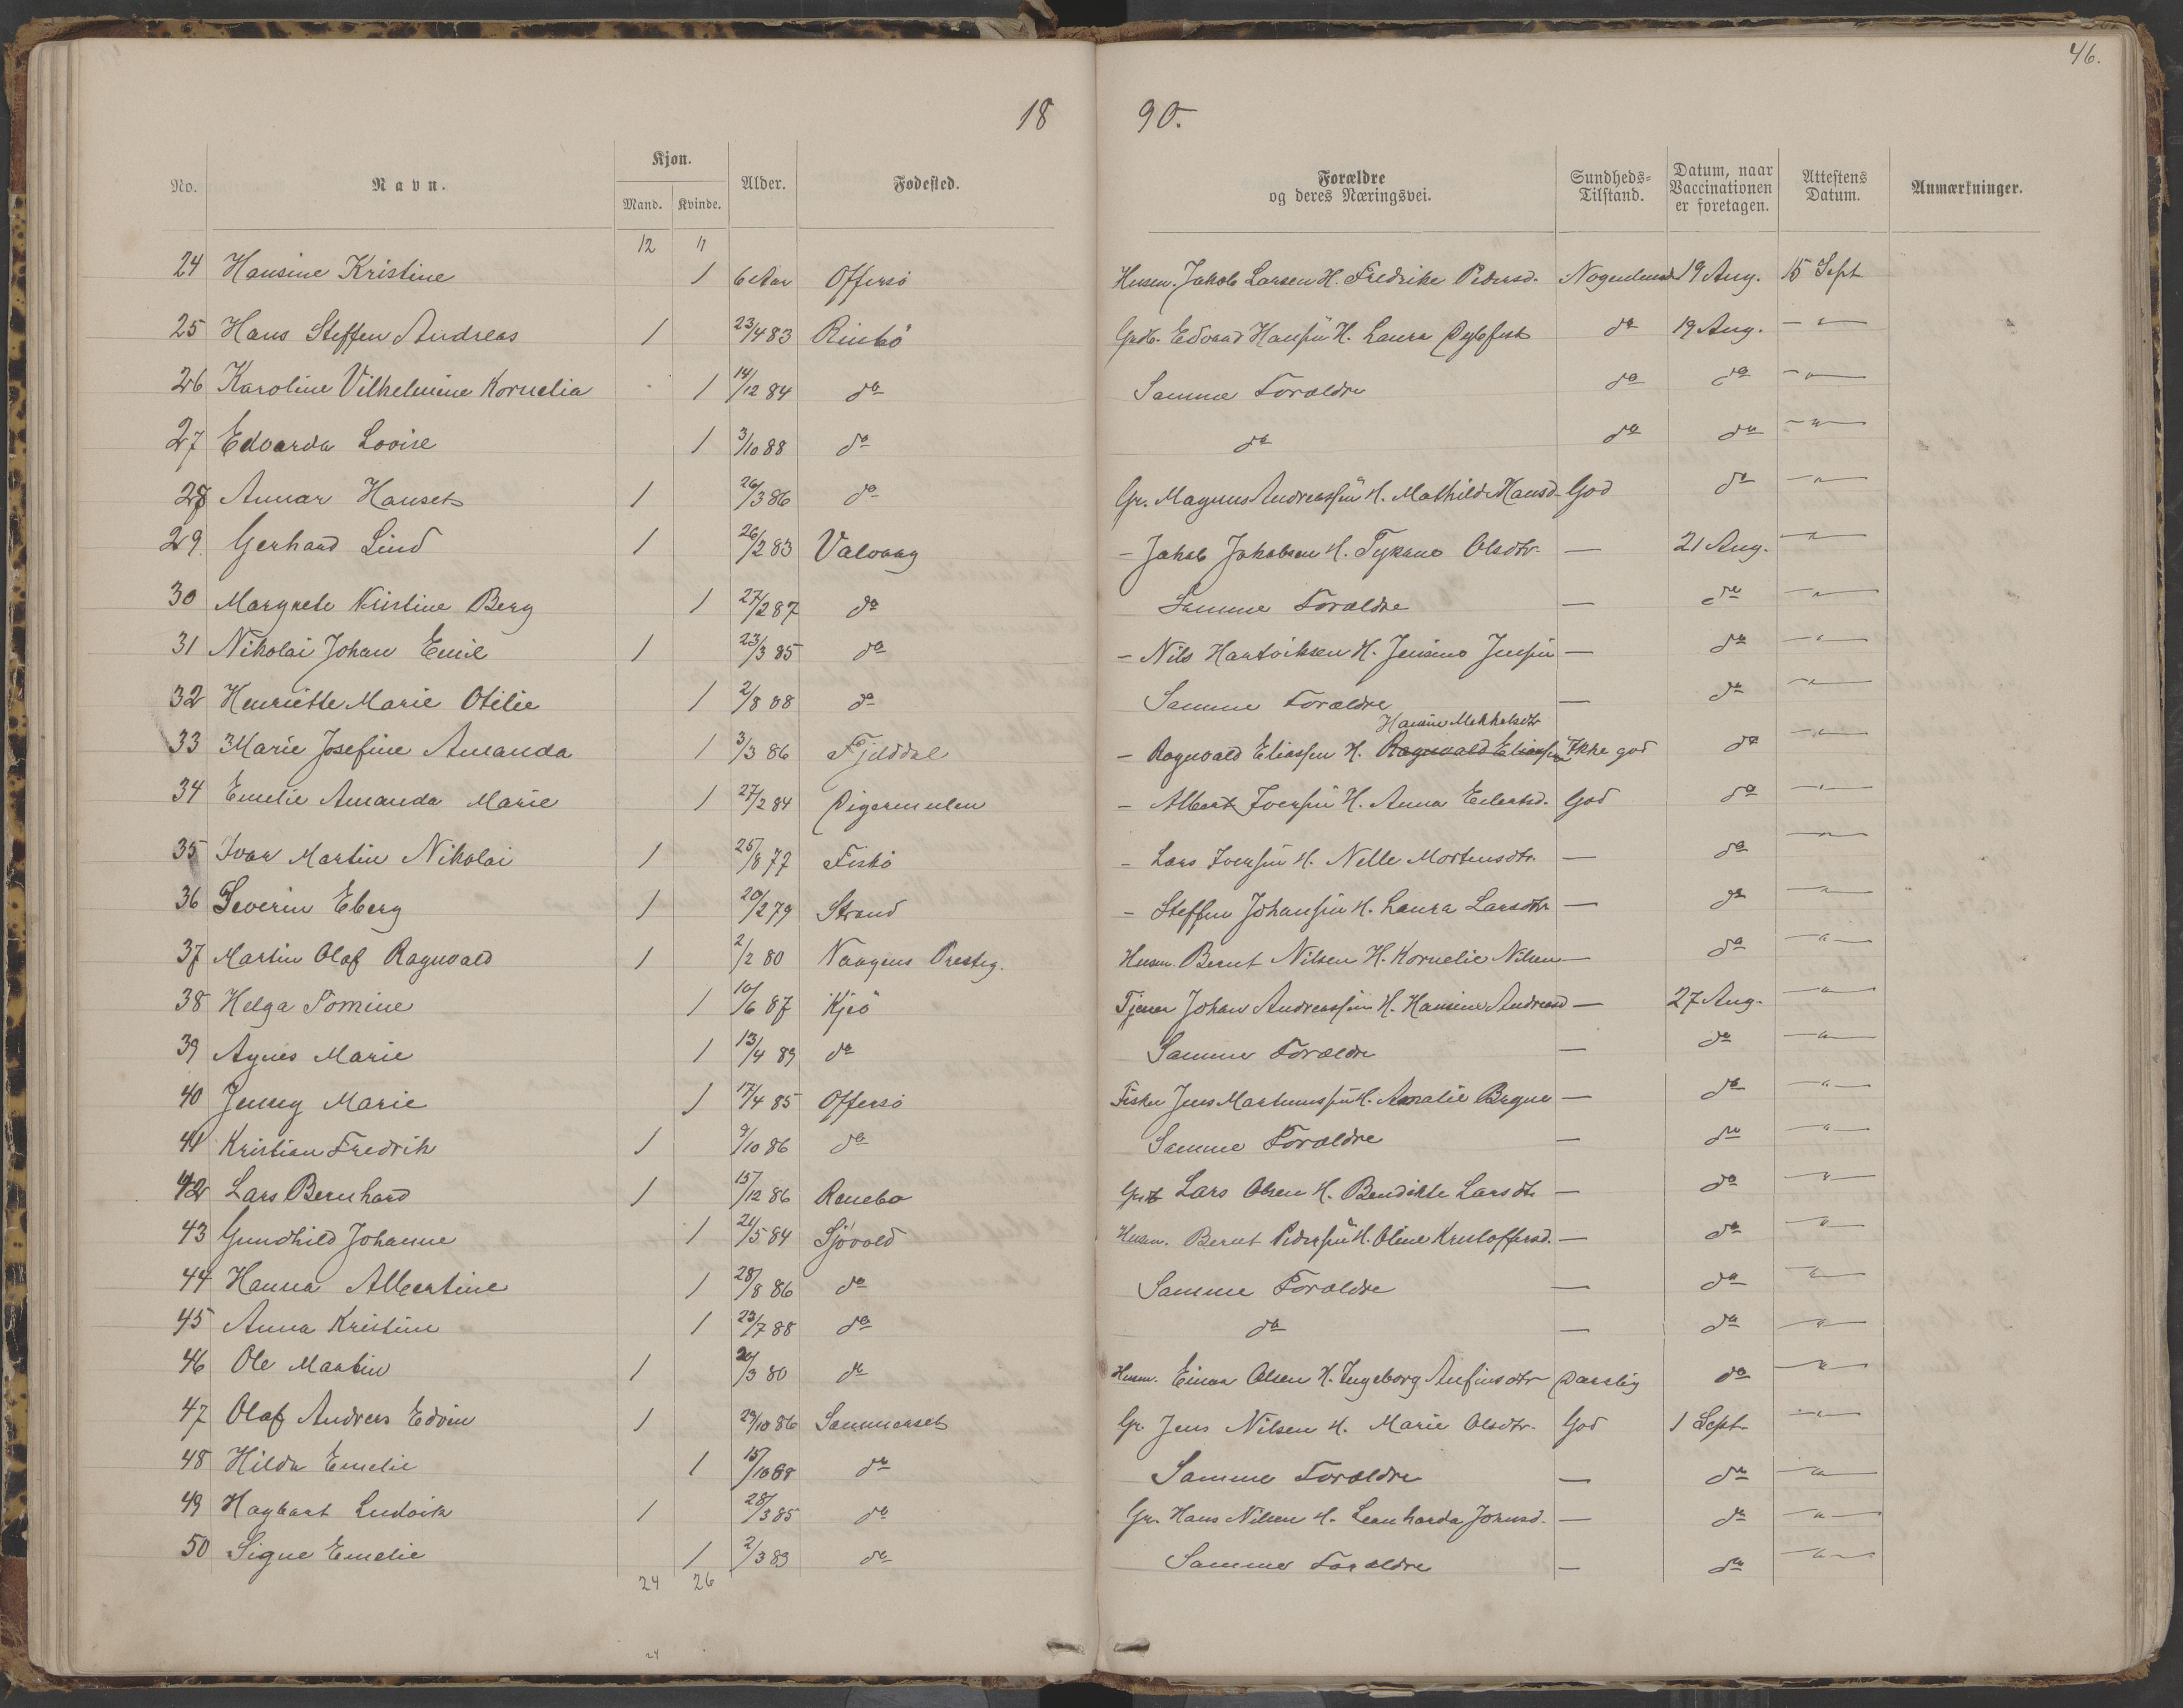 46.
18 90.
No. Navn. Kjøn. Mand. Kvinde. Alder. Fødested. Forældre og deres Næringsvei. Sundheds-Tilstand. Datum, naar Vaccinationen er foretagen. Attestens Datum. Anmærkninger.
12 11
24 Hansine Kristine 1 6 Aar Offersö Husm. Jakob Larsen H. Fredrike Pedersd. 19 Aug. 15 Sept
25 Hans Steffen Andreas 1 23/4 83 Rinbö Edvard Hansen H. Laura do 19 Aug. — " —
26 Karoline Vilhelmine Kornelia 1 14/12 84 do Samme Forældre do do — " —
27 Edvarda Lovise 1 3/10 88 do do do do — " —
28 Annar Hanset 1 26/3 86 do Gr. Magnus Andreassen H. Mathilde Hansd. God do — " —
29. Gerhard Lind 1 26/2 83 Valvaag - Jakob Jakobsen H. Olsdtr. — 21 Aug. — " —
30 Margrete Kristine Berg 1 27/2 87 do Samme Forældre — do — " —
31 Nikolai Johan Emil 1 23/3 85 do - Nils Hartviksen H. Jensen — do — " —
32 Henriette Marie Otilie 1 2/8 88 do Samme Forældre — do — " —
Mekkelsdtr
33 Marie Josefine Amanda 1 3/3 86 Fjelddal - Ragnvald Eliassen H. Ragnvald Eliassen Ikke god do — " —
34 Emelie Amanda Marie 1 27/2 84 Digermulen - Albert Iversen H. Anna Eilertsd. God do — " —
35 Ivar Martin Nikolai 1 25/8 77 Fiskö - Lars Iversen H. Nelle Mortensdtr. — do — " —
36 Severin Eberg 1 20/2 79 Strand - Steffen Johansen H. Laura Larsdtr — do — " —
37 Martin Olaf Ragnvald 1 2/2 80 Vaagens Presteg. Husm. Bernt Nilsen H. Kornelie Nilsen — do — " —
38 Helga Tomine 1 10/6 87 Kjeö Tjener Johan Andreassen H. Hansine Andreasd — 27 Aug. — " —
39 Agnes Marie 1 13/4 89 do Samme Forældre — do — " —
40 Jenny Marie 1 17/4 85 Offersö Fisker Jens Martinussen H. Amalie — do — " —
41 Kristian Fredrik 1 9/10 86 do Samme Forældre — do — " —
42 Lars Bernhard 1 15/12 86 Renebo Lars Olsen H. Bendikte Larsdtr — do — " —
43 Gundhild Johanne 1 21/5 84 Sjövold Husm. Bernt Pedersen H. Oline Kristoffersd. — do — " —
44 Hanna Albertine 1 28/8 86 do Samme Forældre — do — " —
45 Anna Kristine 1 23/7 88 do do — do — " —
46 Ole Martin 1 20/3 80 do Husm. Einar Olsen H. Ingeborg Anfinsdtr Daarlig do — " —
47 Olaf Andreas Edvin 1 29/10 86 Sommerset Gr. Jens Nilsen H. Marie Olsdtr. God 1 Sept. — " —
48 Hilda Emelie 1 15/10 88 do Samme Forældre — do — " —
49 Hagbart Ludvik 1 28/3 85 do Gr. Hans Nilsen H. Leonharda Johnsd. — do — " —
50 Signe Emelie 1 2/3 89 do Samme Forældre — do — " —
24 26
24